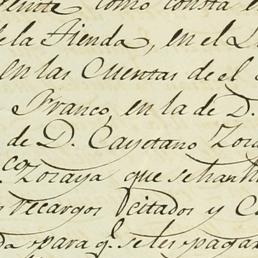 como consta e
de la Tienda, en el L
en las Cuentas de el
Franco, en la de D.
de D. Cayetano Zora
co Zoraya que se han h
recargos citados y C
para q.e se les pagar